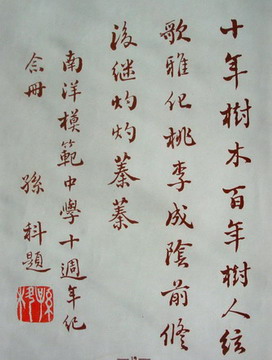 十年樹木百年樹人絃
歌雅化桃李成陰前修
後继灼灼蓁蓁
南洋模範中學十週年纪
念冊
孫科題